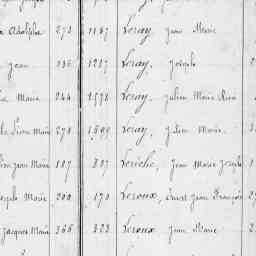 Adolphe 273 1167 Leray, Jean Marie
Jean 336 1217 Leray, Joseph
Marie 244 1578 Leray, Julien Marie René
Marie 278 1599 Leray, Julien Marie
Jean Marie 187 837 Leriche, Jean Marie Joseph
Joseph Marie 200 170 Leroux, Ernest Jean François
Jacques Marie 366 323 Leroux Jean Marie